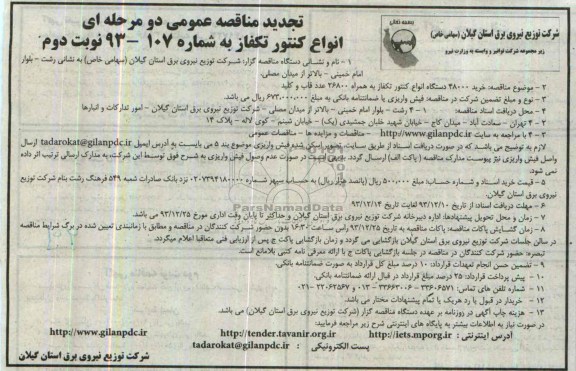 شرکت توزیع نیروی برق استان گیلان (سهامی خاص)
زیر مجموعه شرکت توانیر و وابسته به وزارت نیرو
تجدید مناقصه عمومی دو مرحله ای
انواع کنتور تکفاز به شماره ۱۰۷ - ۹۳ نوبت دوم
۱ - نام و نشانی دستگاه مناقصه گزار: شرکت توزیع نیروی برق استان گیلان (سهامی خاص) به نشانی رشت - بلوار
امام خمینی - بالاتر از میدان مصلی.
۲ - موضوع مناقصه: خرید ۴۸۰۰۰ دستگاه انواع کنتور تکفاز به همراه ۲۶۸۰۰ عدد قاب و کلید
۳ - نوع و مبلغ تضمین شرکت در مناقصه: فیش واریزی یا ضمانتنامه بانکی به مبلغ ۶۷۳,۰۰۰,۰۰۰ ریال می باشد.
۴ - محل دریافت اسناد مناقصه: ۱-۴ رشت - بلوار امام خمینی - بالاتر از میدان مصلی - شرکت توزیع نیروی برق استان گیلان - امور تدارکات و انبارها
۲-۴ تهران - سعادت آباد - میدان کاج - خیابان شهید علیان جمشیدی (یک) - خیابان شبنم - کوی لاله - پلاک ۱۴
۳-۴ با مراجعه به سایت http://www.gilanpdc.ir - مناقصات و مزایده ها - مناقصات عمومی
لازم به توضیح می باشد که در صورت دریافت اسناد از طریق سایت، تصویر اسکن شده فیش واریزی موضوع بند ۵ می بایست به آدرس ایمیل tadarokat@gilanpdc.ir ارسال
واصل فیش واریزی نیز پیوست مدارک مناقصه (پاکت الف) ارسال گردد. بدیهی است در صورت عدم وصول فیش واریزی به شرح فوق توسط این شرکت، به مدارک ارسالی ترتیب اثر داده
نمی شود.
۵ - قیمت خرید اسناد و شماره حساب: مبلغ ۵۰۰,۰۰۰ ریال (پانصد هزار ریال) به حساب سپهر شماره ۰۲۰۷۳۹۴۱۸۰۰۰۰ نزد بانک صادرات شعبه ۵۴۹ فرهنگ رشت بنام شرکت توزیع
نیروی برق استان گیلان.
۶ - مهلت دریافت اسناد: از تاریخ ۹۳/۱۲/۱۰ لغایت تاریخ ۹۳/۱۲/۱۴
۷ - زمان و محل تحویل پیشنهادها: اداره دبیرخانه شرکت توزیع نیروی برق استان گیلان و حداکثر تا پایان وقت اداری مورخ ۹۳/۱۲/۲۵ می باشد.
۸ - زمان گشایش پاکات مناقصه: پاکات مناقصه به تاریخ ۹۳/۱۲/۲۵ راس ساعت ۱۶:۳۰ بدون حضور شرکت کنندگان در مناقصه و مطابق با زمانبندی تعیین شده در برگ شرایط مناقصه
در سالن جلسات شرکت توزیع نیروی برق استان گیلان بازگشایی می گردد و زمان بازگشایی پاکت ج پس از ارزیابی فنی متعاقبا اعلام میگردد.
تبصره: حضور شرکت کنندگان در مناقصه در جلسه بازگشایی پاکات ج با ارائه معرفی نامه کتبی بلامانع است.
۹ - تضمین حسن انجام تعهدات قرارداد: ۱۰ درصد مبلغ کل قرارداد به صورت ضمانتنامه بانکی.
۱۰ - پیش پرداخت قرارداد: ۲۵ درصد مبلغ قرارداد در قبال ارائه ضمانتنامه بانکی.
۱۱ - شماره تلفن های تماس: ۳۳۶۰۶۵۷۱ - ۳۳۶۶۳۰۰۶ - ۰۱۳ و ۲۲۰۶۲۵۶۷ - ۰۲۱
۱۲ - خریدار در قبول یا رد هریک یا تمام پیشنهادات مختار می باشد.
۱۳ - هزینه چاپ آگهی در روزنامه بر عهده دستگاه مناقصه گزار (شرکت توزیع نیروی برق استان گیلان) می باشد.
در صورت نیاز به اطلاعات بیشتر به پایگاه های اینترنتی شرح زیر مراجعه فرمایید:
آدرس اینترنتی : http://iets.mporg.ir http://tender.tavanir.org.ir http://www.gilanpdc.ir
پست الکترونیکی : tadarokat@gilanpdc.ir
شرکت توزیع نیروی برق استان گیلان
ParsNamadData